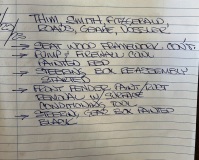 THIM, SMITH, FITZGERALD,
ROADS, GEAKE, VOSSLER
→ SEAT WOOD FRAMEWORK CON'T
→ PUMP / FIREWALL COWL
PAINTED RED
→ STEERING BOX REASSEMBLY
STARTED
→ FRONT FENDER PAINT/RUST
REMOVAL W/ SURFACE
CONDITIONING TOOL
→ STEERIN GEAR BOX PAINTED
BLACK